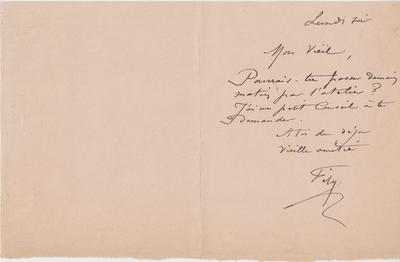 Lundi soir
Mon Vieil,
Pourrais-tu passer demain
matin par l'atelier?
J'ai un petit Conseil à te
demander.
A toi de déja
vieille amitié